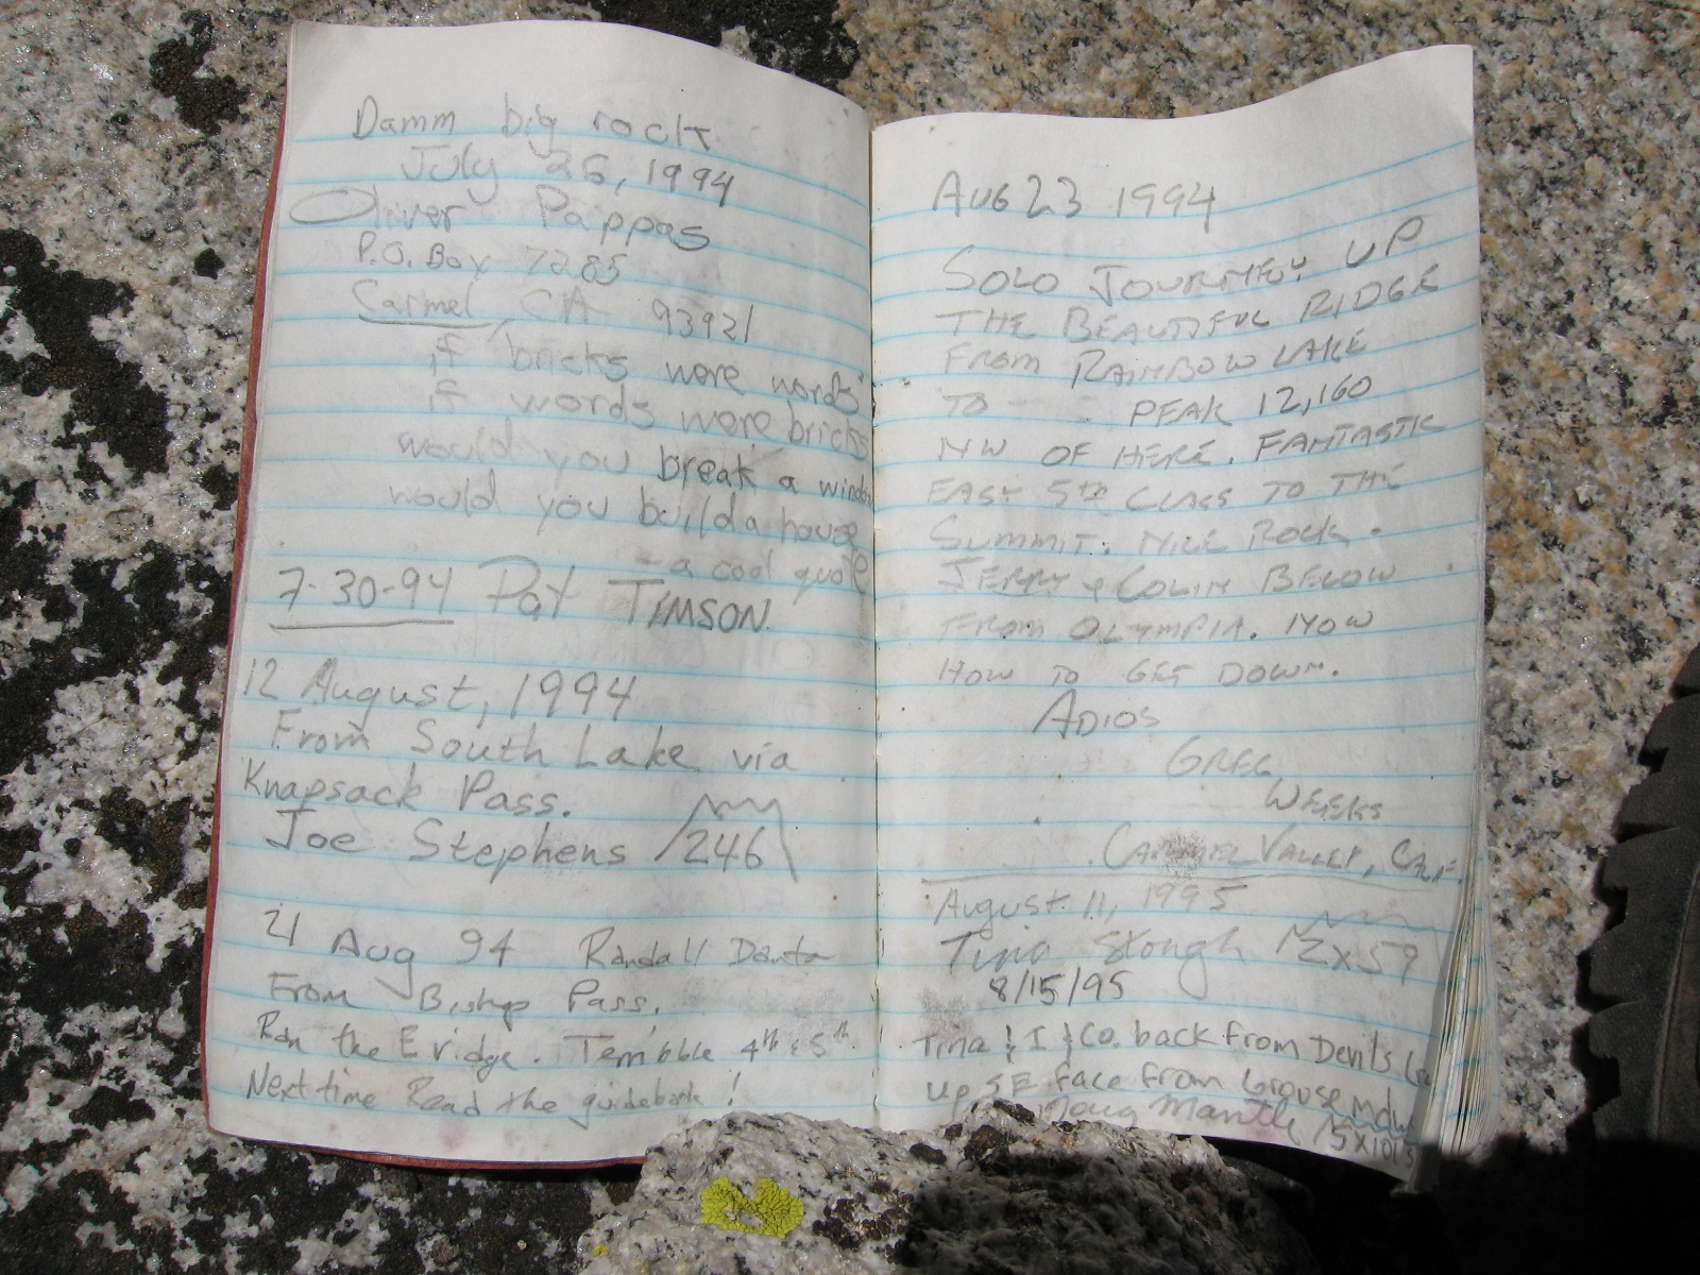 Damm big rock
July 26, 1994
Oliver Pappas
P.O. Box 7285
Carmel, CA 93921
if bricks were words
if words were bricks
would you break a window
would you build a house
- a cool quote
7-30-94 Pat TIMSON.
12 August, 1994
From South Lake via
Knapsack Pass.
Joe Stephens 246
21 Aug 94 Randall
From Bishop Pass.
Ran the E ridge. Terrible 4th & 5th
Next time Read the guidebook!
AUG 23 1994
SOLO JOURNEY UP
THE BEAUTIFUL RIDGE
FROM RAINBOW LAKE
TO PEAK 12,160
NW OF HERE. FANTASTIC
EASY 5th CLASS TO THE
SUMMIT. NICE ROCK.
JERRY & COLIN BELOW
FROM OLYMPIA. NOW
HOW TO GET DOWN.
ADIOS
GREG
WEEKS
CARMEL VALLEY, CALIF.
August 11, 1995
Tina Stough 2x59
8/15/95
Tina & I & Co. back from Devils
up SE face from Grouse mdw
Doug Mantle 15x